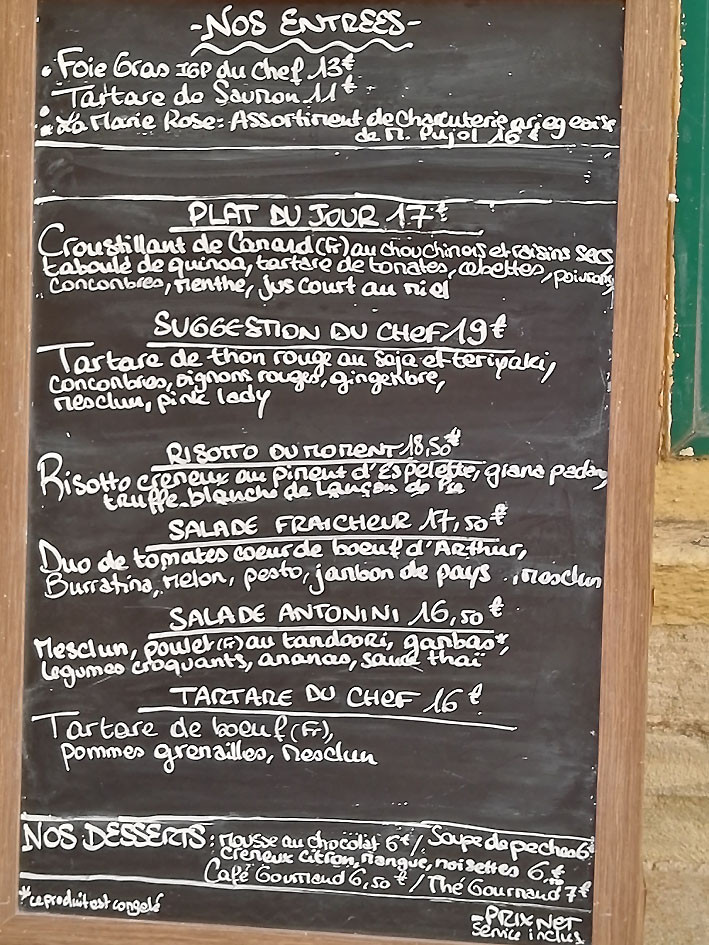 -NOS ENTREES-
• Foie Gras IGP du chef 13€
• Tartare de Saumon 11€
• La Marie Rose: Assortiment de Charcuterie ariegeoise
de M. Pujol 16€
PLAT DU JOUR 17€
Croustillant de Canard (Fr) au chou chinois et raisins secs
taboulé de quinoa, tartare de tomates, cebettes, poivrons,
concombres, menthe, jus court au miel
SUGGESTION DU CHEF 19€
Tartare de thon rouge au soja et teriyaki,
concombres, oignons rouges, gingembre,
mesclun, pink lady
RISOTTO DU MOMENT 18,50€
Risotto crémeux au piment d'Espelette, grana padano,
truffe blanche de
SALADE FRAICHEUR 17,50€
Duo de tomates coeur de boeuf d'Arthur,
Burratina, Melon, pesto, jambon de pays, mesclun
SALADE ANTONINI 16,50€
Mesclun, poulet (Fr) au tandoori, gambas*,
légumes croquants, ananas, sauce thaï
TARTARE DU CHEF 16€
Tartare de boeuf (Fr),
pommes grenailles, mesclun
NOS DESSERTS: Mousse au chocolat 6€ / Soupe de peches 6€
Crémeux citron, mangue, noisettes 6€
Café Gourmand 6,50€ / Thé Gourmand 7€
*ce produit est congelé
-PRIX NET
Service inclus